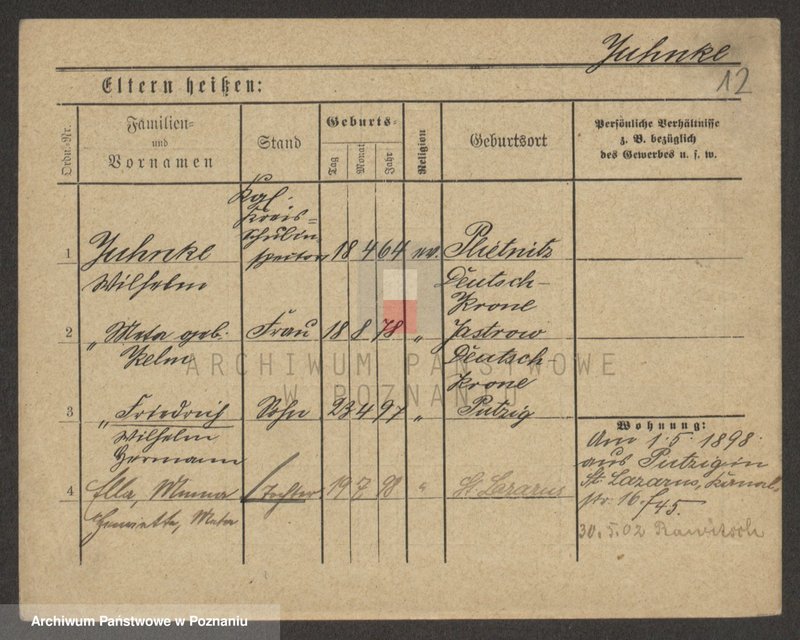 Juhnke
12
Eltern heißen:
Ordn.-Nr.
Familien=
und
Vornamen
Stand
Geburts=
Tag
Monat
Jahr
Religion
Geburtsort
Persönliche Verhältnisse
z. B. bezüglich
des Gewerbes u. s. w.
Kgl.
Kreis=
Schulin
spector
1 Juhnke 18 4 64 ev. Plietnitz
Wilhelm Deutsch-
Krone
2 " Meta geb. Frau 18 8 78 " Jastrow
Kelm Deutsch
Krone
3 " Friedrich Sohn 23 4 97 " Putzig
Wilhelm
Hermann
4 Ella, Minna Tochter 19 7 98 " St. Lazarus
Henriette, Meta
Wohnung:
Am 1.5.1898.
aus Putzig in
St. Lazarus, Kanal
str. 16.
30.5.02 Rawitsch
ARCHIWUM PAŃSTWOWE
W POZNANIU
Archiwum Państwowe w Poznaniu